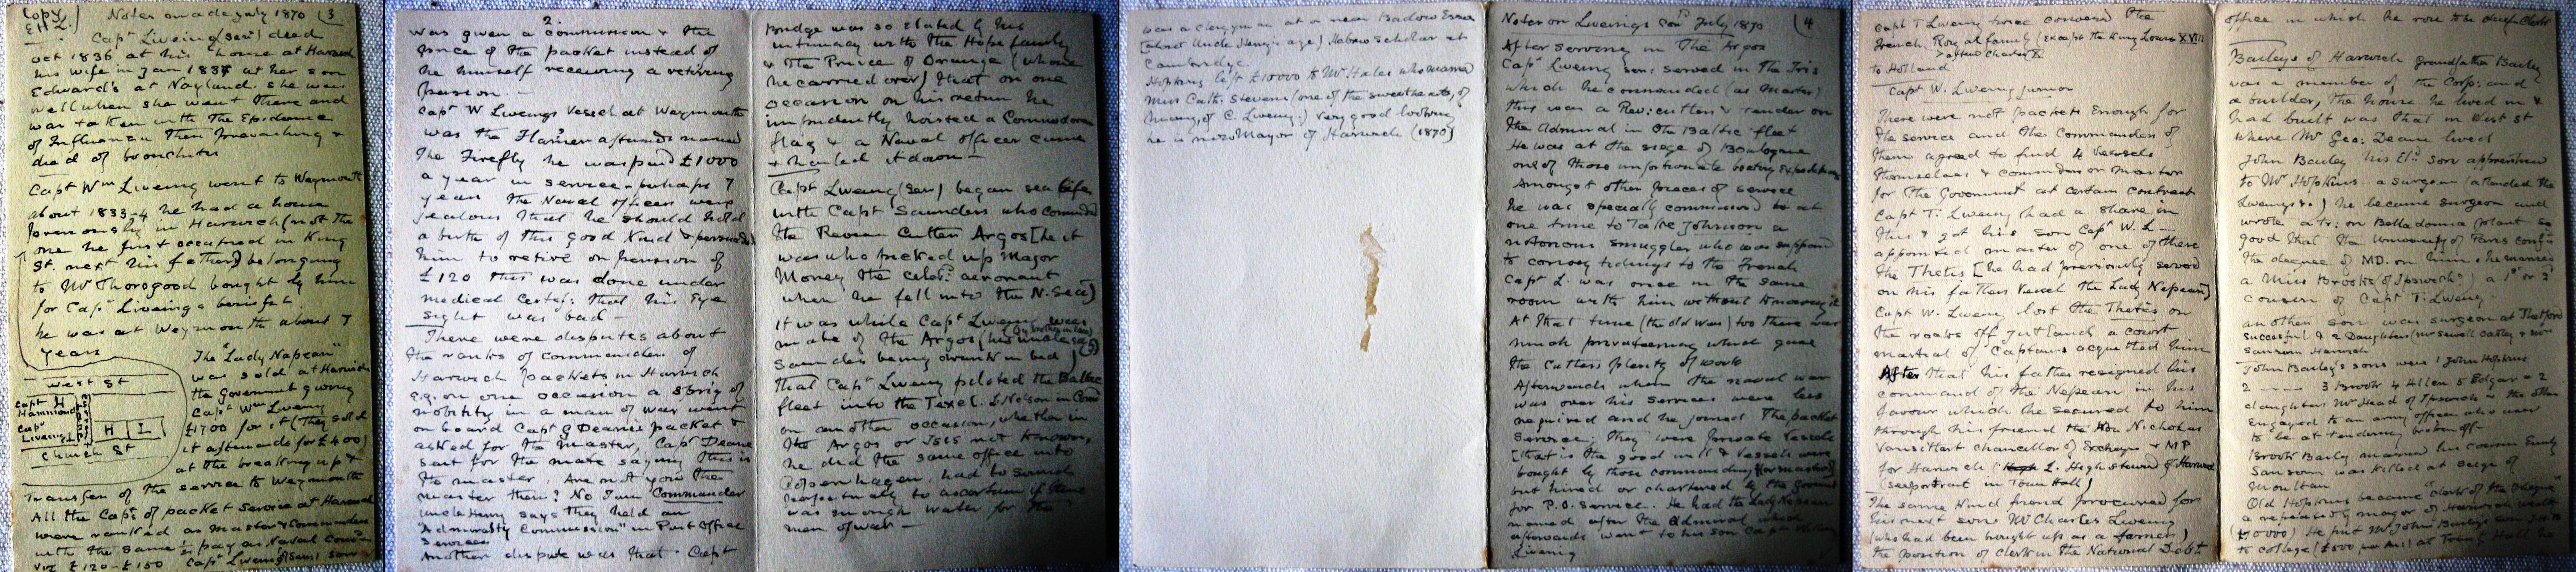 Copy
EHL.)
Notes made July 1870 (3
Capt Liveing (sen) died
Oct 1836 at his house at Harwich
his wife in Jan 1837 at her son
Edward's at Nayland. she was
well when she went there and
was taken with the Epidemic
of Influenza then prevailing &
died of bronchitis
Capt Wm Liveing went to Weymouth
about 1833-4 he had a house
previously in Harwich (not the
one he first occupied in King
St. next his father) belonging
to Mr Thorogood bought by him
for Capt Liveing's benefit
he was at Weymouth about 7
years
The "Lady Nepean"
was sold at Harwich
the Government giving
Capt Wm Liveing
£1700 for it (They sold
it afterwards for £400)
at the breaking up &
transfer of the service to Weymouth
West St
Capt H
Hammond
Capt
Liveing
H L
Church St
All the Capts of packet service at Harwich
were ranked as Master & Commanders
with the same ½ pay as Naval Comm
viz £120-£150 Capt Liveing (sen) son
2.
was given a commission & the
price of the packet instead of
he himself receiving a retiring
pension. —
Capt W Liveings Vessel at Weymouth
was the afterwards named
the Firefly he was paid £1000
a year in service - perhaps 7
years the Naval officers were
jealous that he should hold
a birth of this good kind & persuaded
him to retire on pension of
£120 this was done under
medical certif: that his Eye
sight was bad —
There were disputes about
the ranks of commanders of
Harwich packets in Harwich
e.g. on one occasion a sprig of
nobility in a man of war went
on board Capt G Deane's packet &
asked for the master, Capt Deane
sent for the mate saying this is
the master, Are not you the
master then? No I am Commander
Uncle Henry says they held an
"Admiralty Commission" in Post Office
Services
Another dispute was that Capt
Bridge was so elated by his
intimacy with the Hope family
& the Prince of Orange (whom
he carried over) that on one
occasion on his return he
impudently hoisted a Commodore
flag & a Naval officer came
& hauled it down —
Capt Liveing (sen) began sea life
with Capt Saunders who commanded
the Revenue Cutter Argos [he it
was who picked up Major
Money the celeb: aeronaut
when he fell into the N. Sea]
It was while Capt Liveing was
mate of the Argos (his uncle
(by brother in law)
Saunders being drunk in bed)
that Capt Liveing piloted the Baltic
fleet into the Texel. L. Nelson in Com
on another occasion, whether in
the Argos or Isis not known,
he did the same office into
Copenhagen, had to sound
perpetually to ascertain if there
was enough water for the
men of war —
was a clergyman at or near Badow Essex
(about Uncle Henry's age) Hebrew scholar at
Cambridge.
Hopkins left £10000 to Mr Hales who married
Miss Cath: Stevens (one of the sweethearts, of
, of C. Liveing.) very good looking
he is now Mayor of Harwich (1870)
Notes on Liveings con July 1870 (4
After serving in The Argos
Capt Liveing sen: served in The Iris
which he commanded (as Master)
this was a Rev: cutter & tender on
the Admiral in the Baltic fleet
He was at the siege of Boulogne
one of those unfortunate boating expeditions
Amongst other pieces of service
he was specially commissioned at
one time to take Johnson a
notorious smuggler who was supposed
to convey tidings to the French
Capt L. was once in the same
room with him without knowing it
At that time (the old war) too there was
much privateering which gave
the Cutters plenty of work
Afterwards when the naval war
was over his services were less
required and he joined The packet
service, they were private vessels
[that is the good will & vessels were
bought by those commanding (or masters)]
but hired or chartered by the Governmt
for P.O. service. He had the Lady Nepean
named after the Admiral which
afterwards went to his son Capt
Liveing
Capt T Liveing twice convoyed the
French Royal family (except the King Louis XVIII
after Charles X
to Holland
Capt W. Liveing junior
There were not packets Enough for
the service and the Commanders of
them agreed to find 4 vessels
themselves & commission master
for the Government at certain contract
Capt T: Liveing had a share in
this & got his son Capt W. L —
appointed master of one of these
the Thetis [he had previously served
on his father's vessel the Lady Nepean]
Capt W. Liveing lost the Thetis on
the rocks off Jutland a court
martial of Captains acquitted him
After that his father resigned his
command of the Nepean in his
favour which he secured to him
through his friend the Hon Nicholas
Vansittart chancellor of Excheqr & MP
for Harwich L. High steward of Harwich
(see portrait in Town Hall)
The same kind friend procured for
his next son Mr Charles Liveing
(who had been brought up as a farmer)
the position of clerk in the National Debt
office in which he rose to be chief Clerk
Baileys of Harwich Grandfather Bailey
was a member of the Corp: and
a builder, the house he lived in &
had built was that in West St
where Mr Geo: Deane lived
John Bailey his Eld son apprenticed
to Mr Hopkins a surgeon (attended the
Liveings.) he became surgeon and
wrote a tr: on Belladonna (plant so
good that the University of Paris conf
the degree of MD. on him. he married
a Miss Brooks (of Ipswich?) a 1st or 2d
cousin of Capt T. Liveing
another son was surgeon at Thetford
successful & 2 Daughters Mrs Sewell Oakley & Mrs
Sansom Harwich
John Bailey's sons were 1 John Hopkins
2 —— 3 Brook 4 Allen 5 Edgar & 2
daughters Mrs Head of Ipswich & the other
Engaged to an army officer who was
to be at tending broken off -
Brook Bailey married his cousin Emily
Sansom was killed at siege of
Moultan
Old Hopkins became "clerk of the Cheque"
& repeatedly mayor of Harwich wealth
(£10000) He put Mr John Bailey's son J.H.B.
to college (£500 per An:) at Trinity Hall he